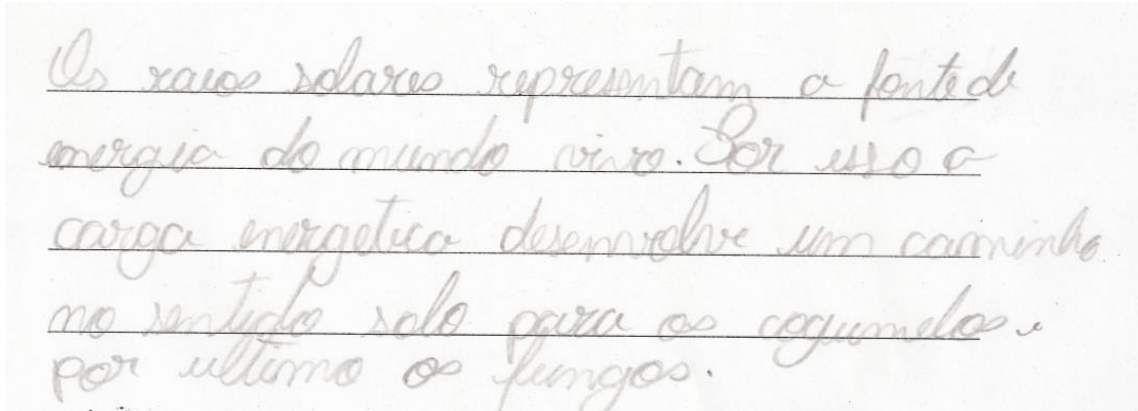 Os raios solares representam a fonte de
energia do mundo vivo. Por isso a
carga energetica desenvolve um caminho
no sentido solo para os cogumelos e
por ultimo os fungos.